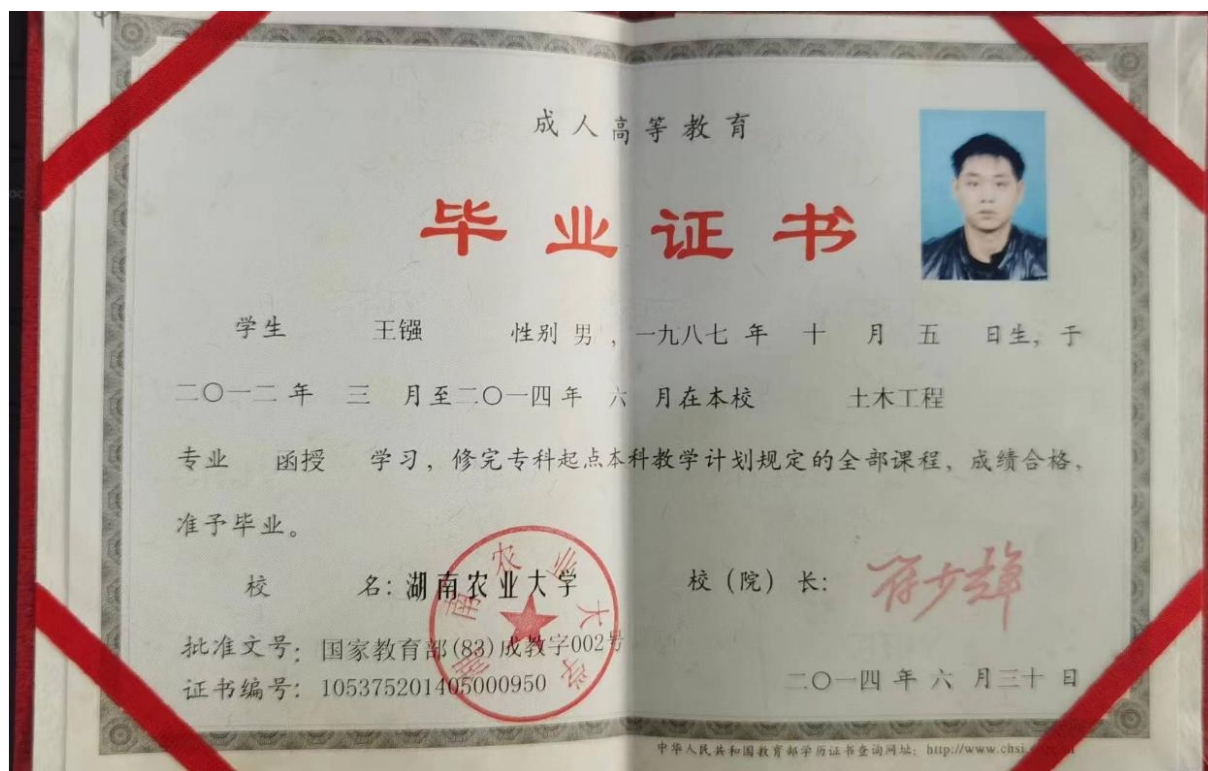 成人高等教育
毕业证书
学生 王镪 性别 男，一九八七 年 十 月 五 日生，于
二〇一二 年 三 月至二〇一四 年 六 月在本校 土木工程
专业 函授 学习，修完专科起点本科教学计划规定的全部课程，成绩合格，
准予毕业。
校 名：湖南农业大学 校（院）长：符少辉
湖南农业大学
批准文号：国家教育部(83)成教字002号
证书编号：105375201405000950 二〇一四 年 六 月三十 日
中华人民共和国教育部学历证书查询网址：http://www.chsi.